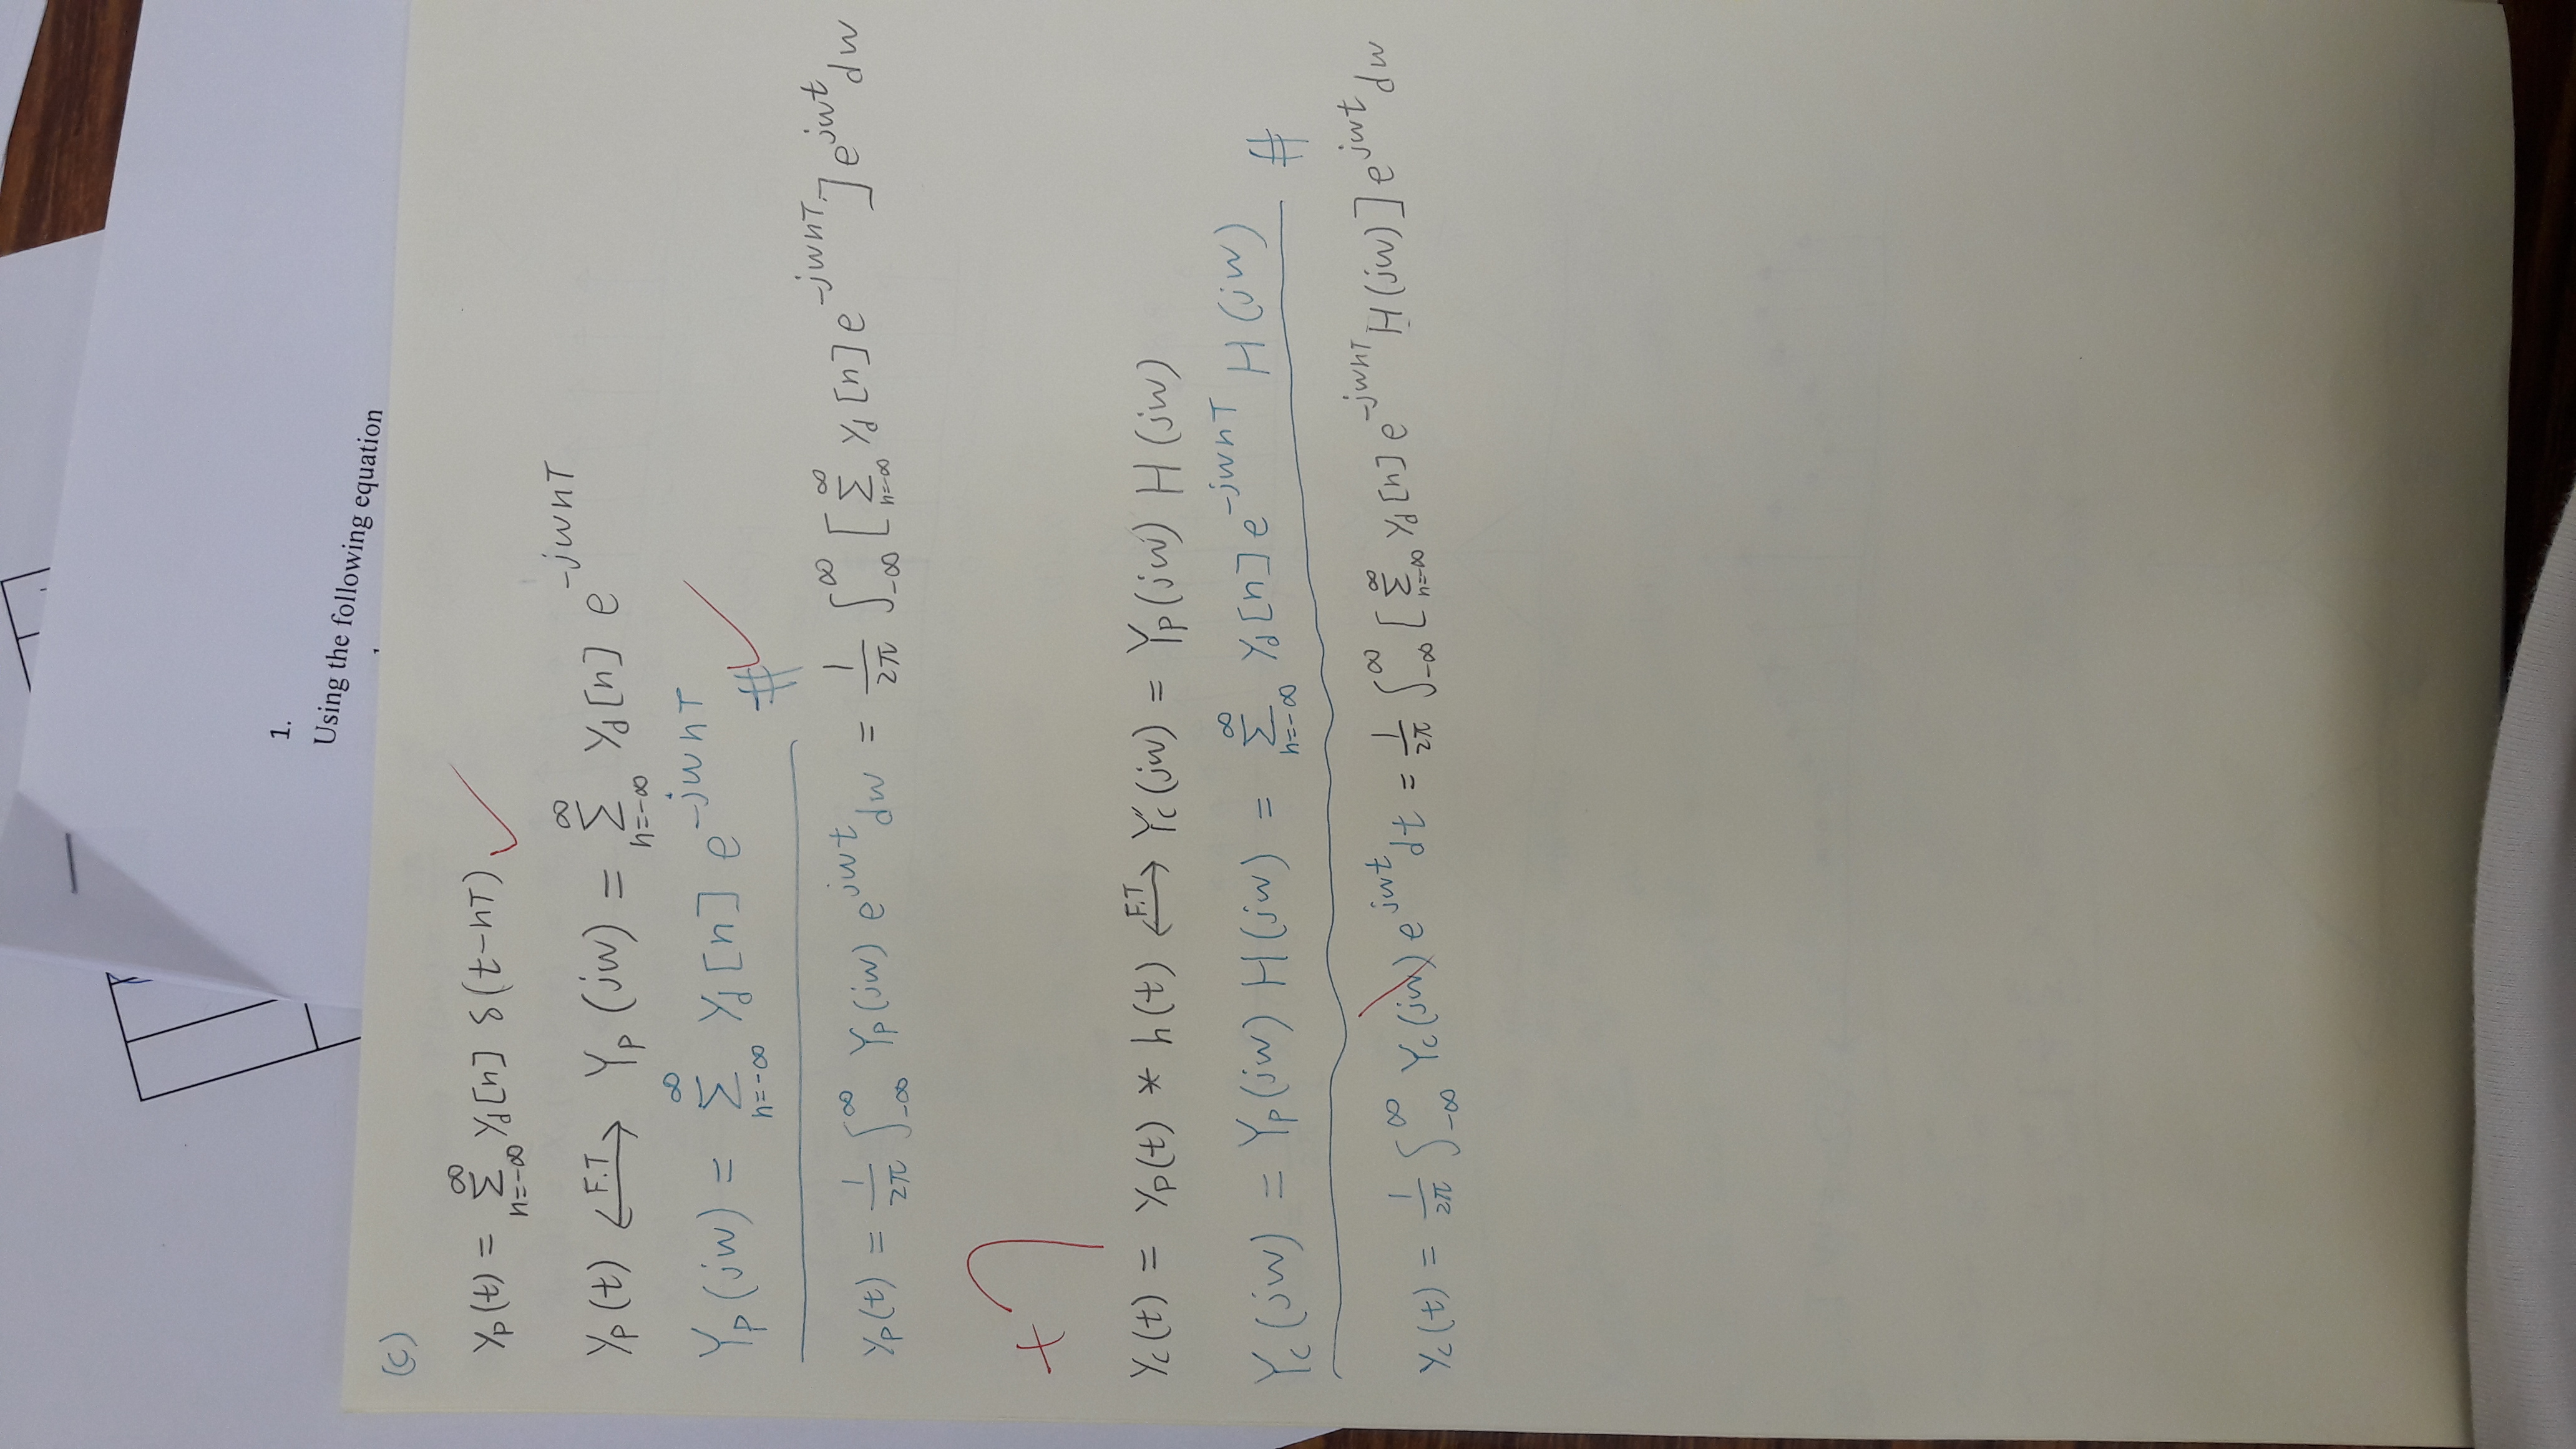 1.
Using the following equation
(c)
y_p(t) = ∑_{n=-∞}^{∞} y_d[n] δ(t-nT) ✓
y_p(t) ⟷^{F.T} Y_p(jw) = ∑_{n=-∞}^{∞} y_d[n] e^{-jwnT}
Y_p(jw) = ∑_{n=-∞}^{∞} y_d[n] e^{-jwnT} # ✓
y_p(t) = 1/2π ∫_{-∞}^{∞} Y_p(jw) e^{jwt} dw = 1/2π ∫_{-∞}^{∞} [∑_{n=-∞}^{∞} y_d[n] e^{-jwnT}] e^{jwt} dw
+7
y_c(t) = y_p(t) * h(t) ⟷^{F.T} Y_c(jw) = Y_p(jw) H(jw)
Y_c(jw) = Y_p(jw) H(jw) = ∑_{n=-∞}^{∞} y_d[n] e^{-jwnT} H(jw) #
y_c(t) = 1/2π ∫_{-∞}^{∞} Y_c(jw) e^{jwt} dt = 1/2π ∫_{-∞}^{∞} [∑_{n=-∞}^{∞} y_d[n] e^{-jwnT} H(jw)] e^{jwt} dw